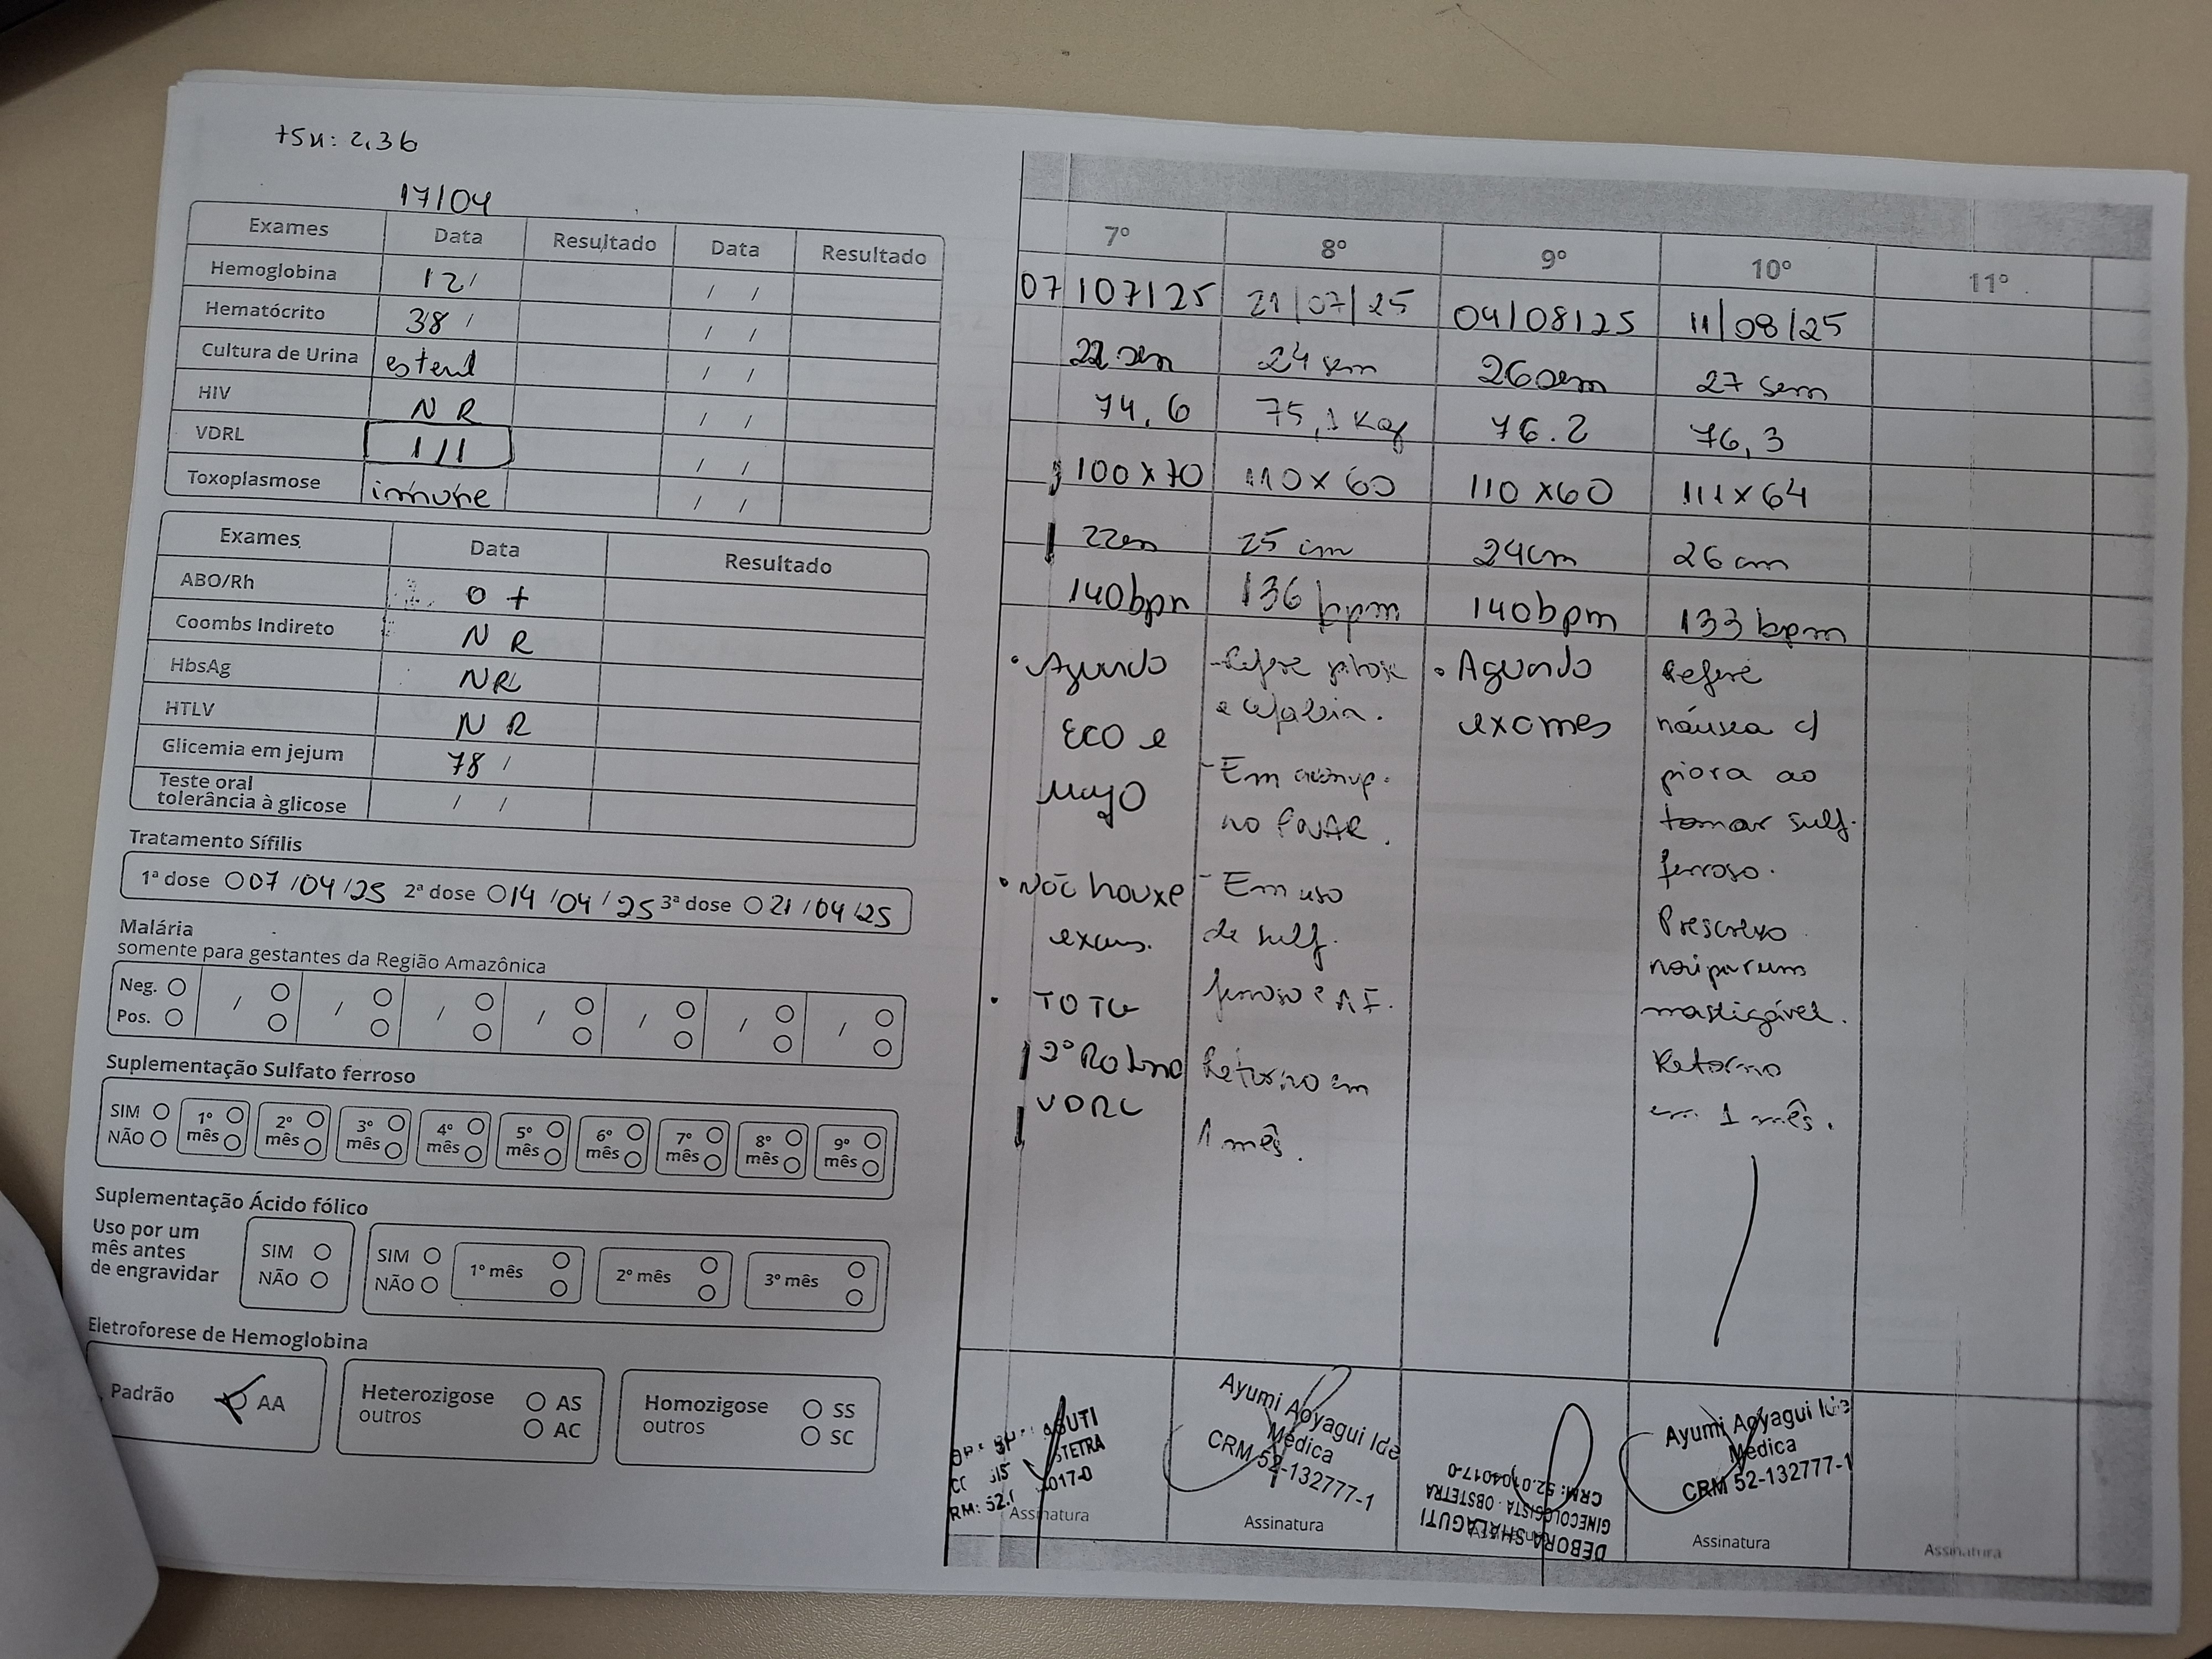 TSH: 2,36
17/04
Exames Data Resultado Data Resultado
Hemoglobina 12 / / /
Hematócrito 38 / / /
Cultura de Urina esteril / /
HIV N R / /
VDRL 1/1 / /
Toxoplasmose imune / /
Exames Data Resultado
ABO/Rh O +
Coombs Indireto N R
HbsAg NR
HTLV N R
Glicemia em jejum 78 /
Teste oral
tolerância à glicose / /
Tratamento Sífilis
1ª dose 07/04/25 2ª dose 14/04/25 3ª dose 21/04/25
Malária
somente para gestantes da Região Amazônica
Neg. / / / / / / /
Pos.
Suplementação Sulfato ferroso
SIM 1º 2º 3º 4º 5º 6º 7º 8º 9º
NÃO mês mês mês mês mês mês mês mês mês
Suplementação Ácido fólico
Uso por um
mês antes
de engravidar
SIM
NÃO
SIM
NÃO
1º mês 2º mês 3º mês
Eletroforese de Hemoglobina
Padrão AA
Heterozigose
outros
AS
AC
Homozigose
outros
SS
SC
7º 8º 9º 10º 11º
07/07/25 21/07/25 04/08/25 11/08/25
22 sem 24 sem 26 sem 27 sem
74,6 75,1 Kg 76.2 76,3
100x70 110x60 110x60 111x64
22cm 25 cm 24cm 26 cm
140bpm 136 bpm 140bpm 133 bpm
• Aguardo
ECO e
• Não houxe
exams.
• TOTG
2º Rotina
VDRL
- Refere
e
- Em
no
- Em uso
de sulf.
ferroso e AF.
Retorno em
1 mês.
• Aguardo
exames
Refere
náusea c/
piora ao
tomar sulf.
ferroso.
Prescrevo
noripurum
mastigável.
Retorno
em 1 mês.
Assinatura
Ayumi Aoyagui Ide
Médica
CRM 52-132777-1
Assinatura
DEBORA SHALAGUTI
GINECOLOGISTA - OBSTETRA
CRM: 52.0104017-0
Ayumi Aoyagui Ide
Médica
CRM 52-132777-1
Assinatura
Assinatura